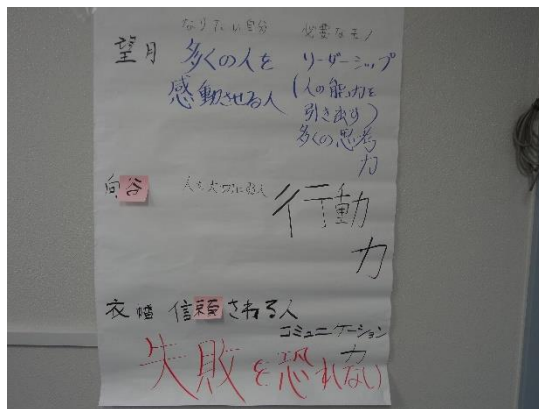 なりたい自分 必要なモノ
望月 多くの人を リーダーシップ
感動させる人 (人の能力を
引き出す)
多くの思考
力
向谷 人を大切にする人 行動
力
衣幡 信頼される人
コミュニケーション
力
失敗を恐れない